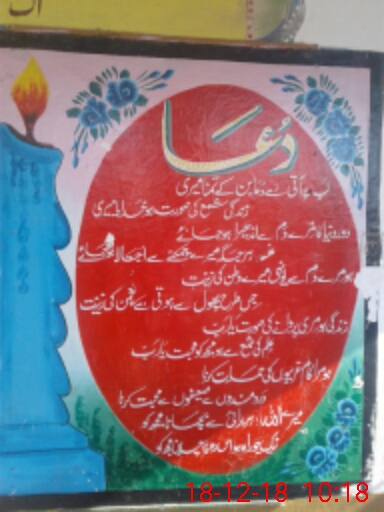 دُعا
لب پہ آتی ہے دعا بن کے تمنا میری
زندگی شمع کی صورت ہو خدایا میری
دور دنیا کا مرے دم سے اندھیرا ہو جائے
ہر جگہ میرے چمکنے سے اجالا ہو جائے
ہو مرے دم سے یونہی میرے وطن کی زینت
جس طرح پھول سے ہوتی ہے چمن کی زینت
زندگی ہو مری پروانے کی صورت یارب
علم کی شمع سے ہو مجھ کو محبت یارب
ہو مرا کام غریبوں کی حمایت کرنا
دردمندوں سے ضعیفوں سے محبت کرنا
میرے اللہ! برائی سے بچانا مجھ کو
نیک جو راہ ہو اس رہ پہ چلانا مجھ کو
18-12-18 10:18